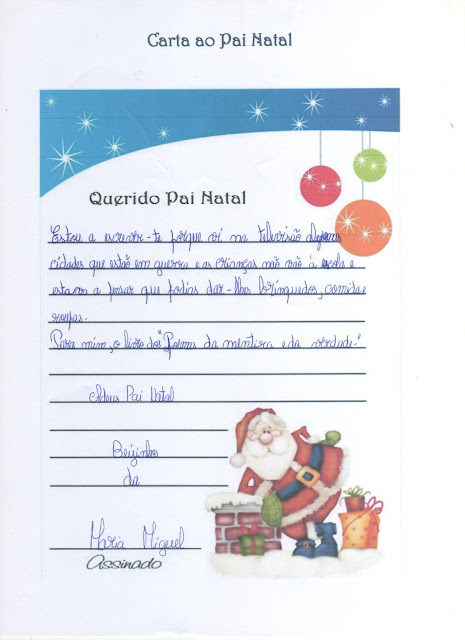 Carta ao Pai Natal
Querido Pai Natal
Estou a escrevr-te porque vi na televisão algumas
cidades que estão em guerra e as crianças não vão à escola e
estava a pensar que podias dar-lhes brinquedos, comida e
roupas.
Para mim, o livro dos "Poemas da mentira e da verdade."
Adeus Pai Natal
Beijinhos
da
Maria Miguel
Assinado